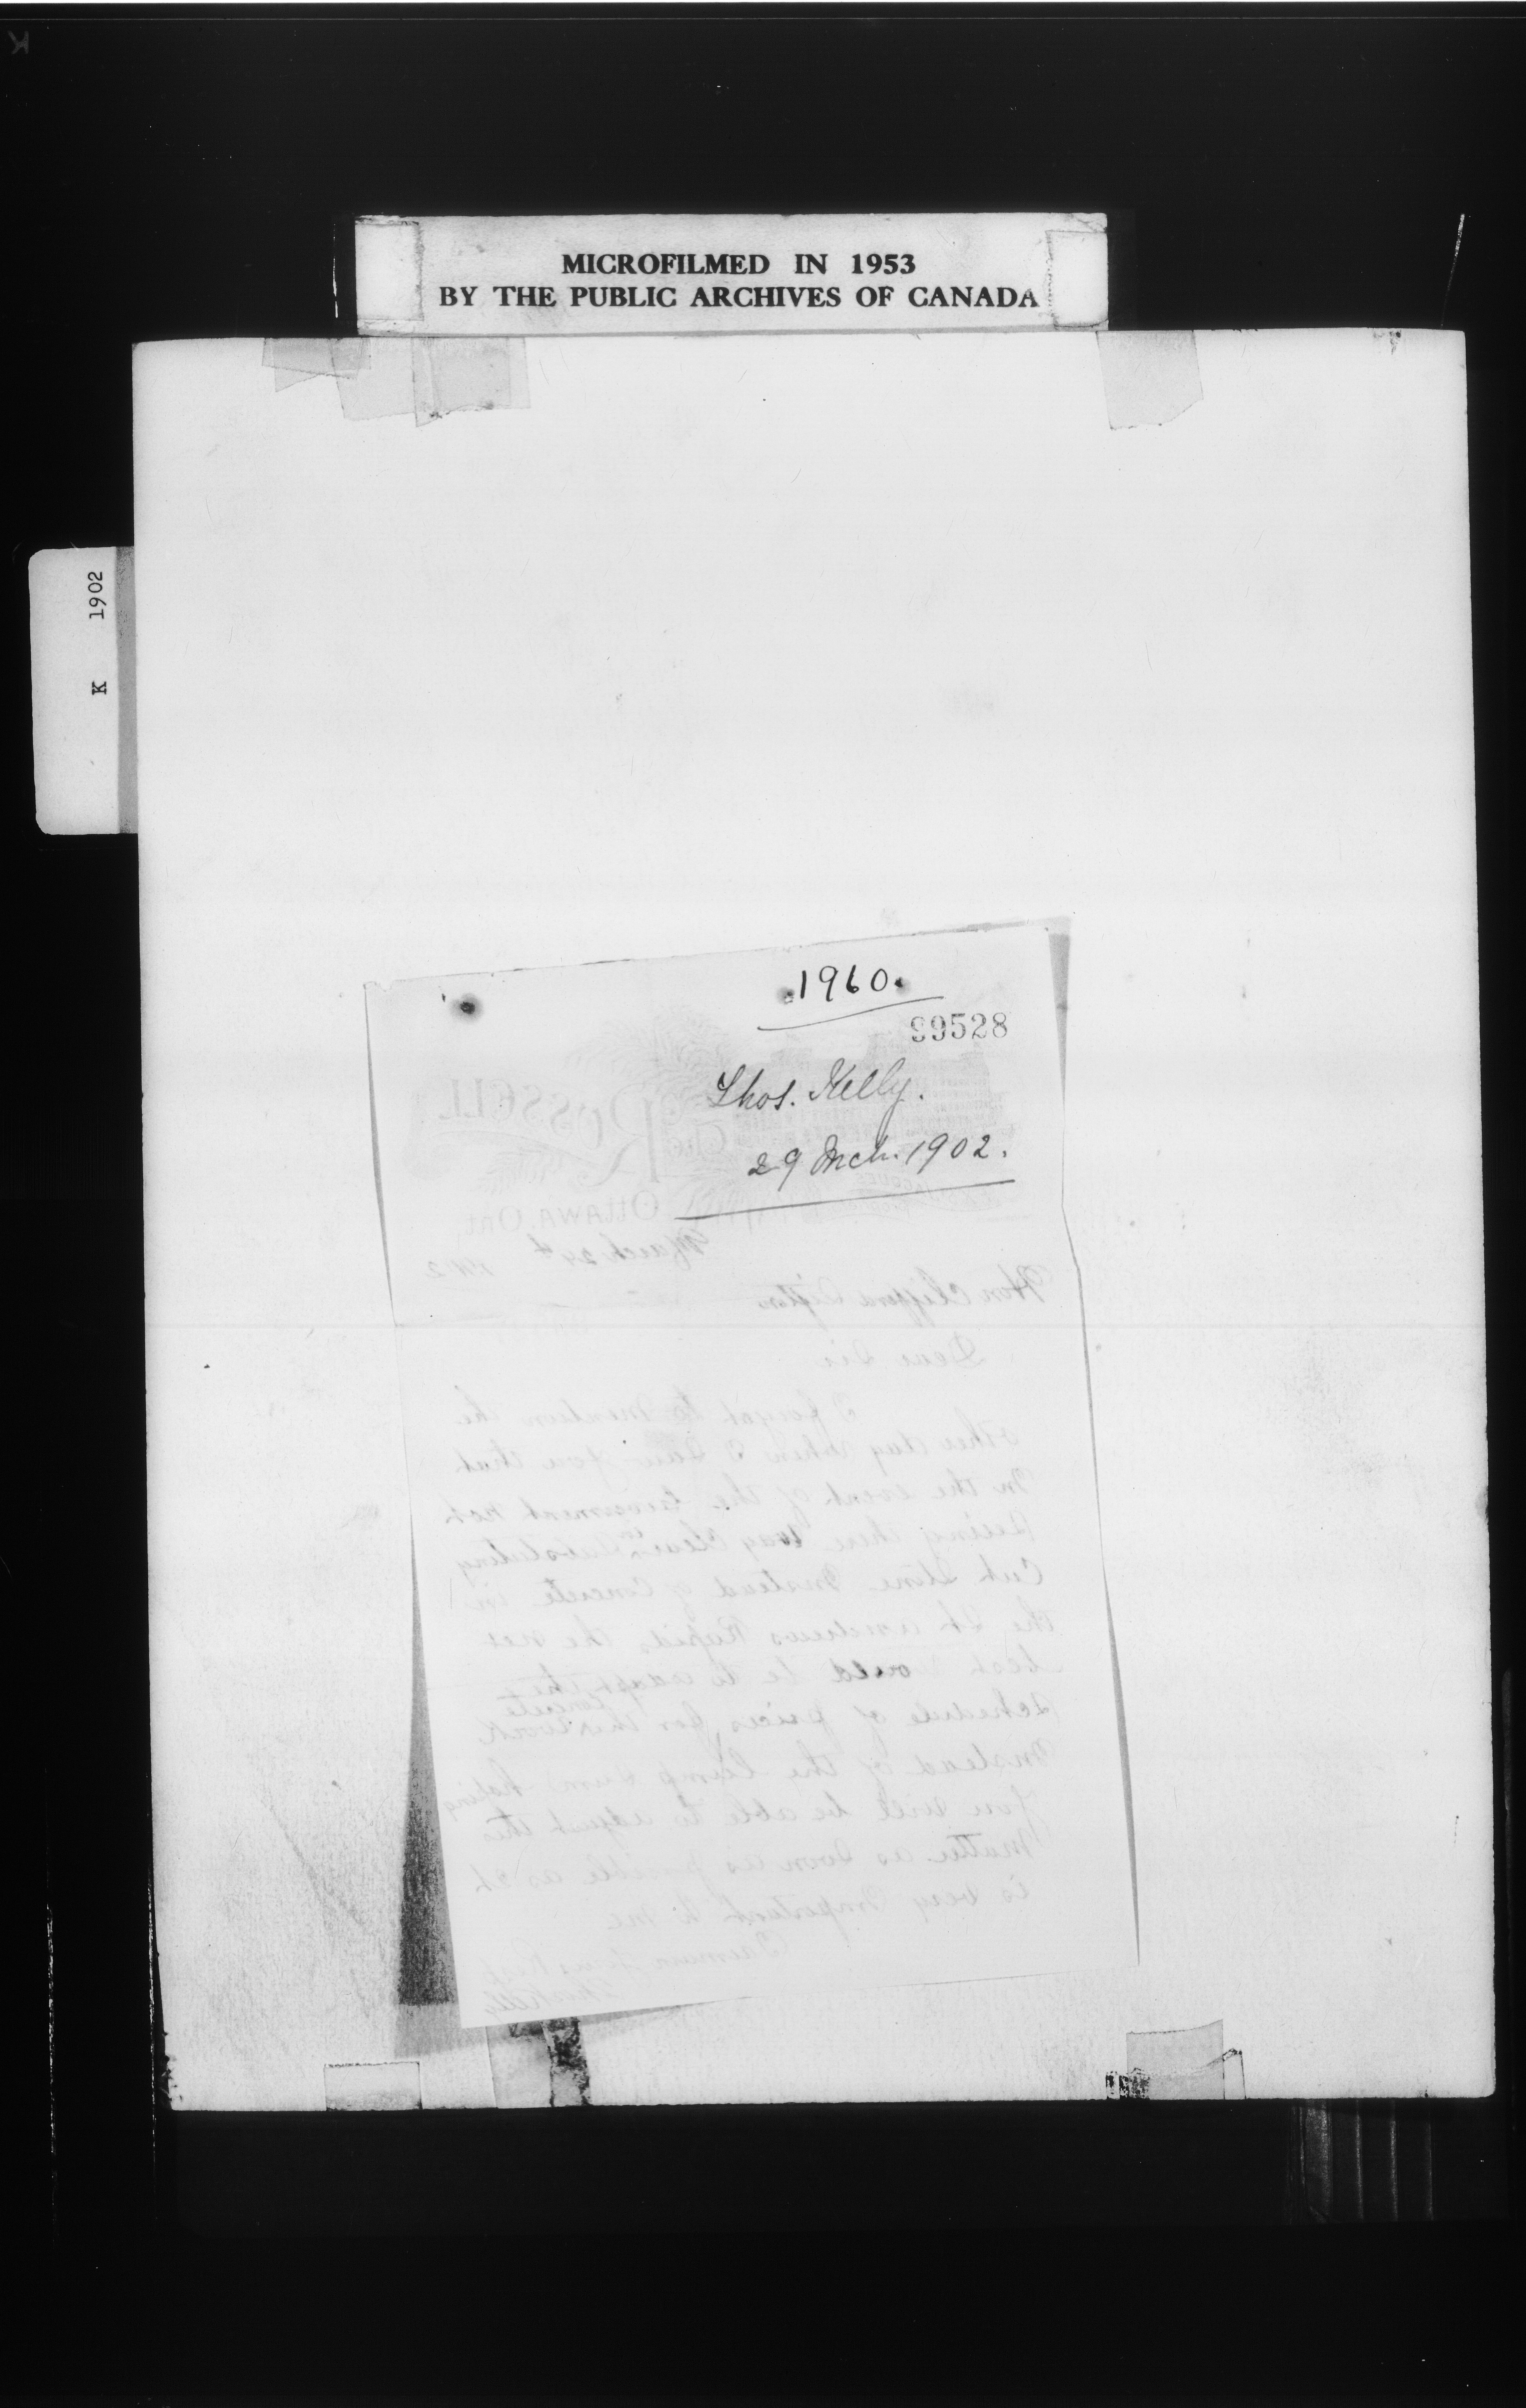 MICROFILMED IN 1953
BY THE PUBLIC ARCHIVES OF CANADA
K 1902
1960.
99528
Thos. Kelly.
29 Mch. 1902.
The RUSSELL
OTTAWA, ONT.
March 29th 1902
Hon Clifford Sifton
Dear Sir
I forgot to mention the
other day when I saw you that
in the event of the Government not
seeing there way clear in
Cut Stone instead of Concrete in
the St Andrews Rapids the
best would be to the
schedule of prices for the Concrete work
instead of the lump sum hoping
you will be able to adjust this
matter as soon as possible as it
is very important to me